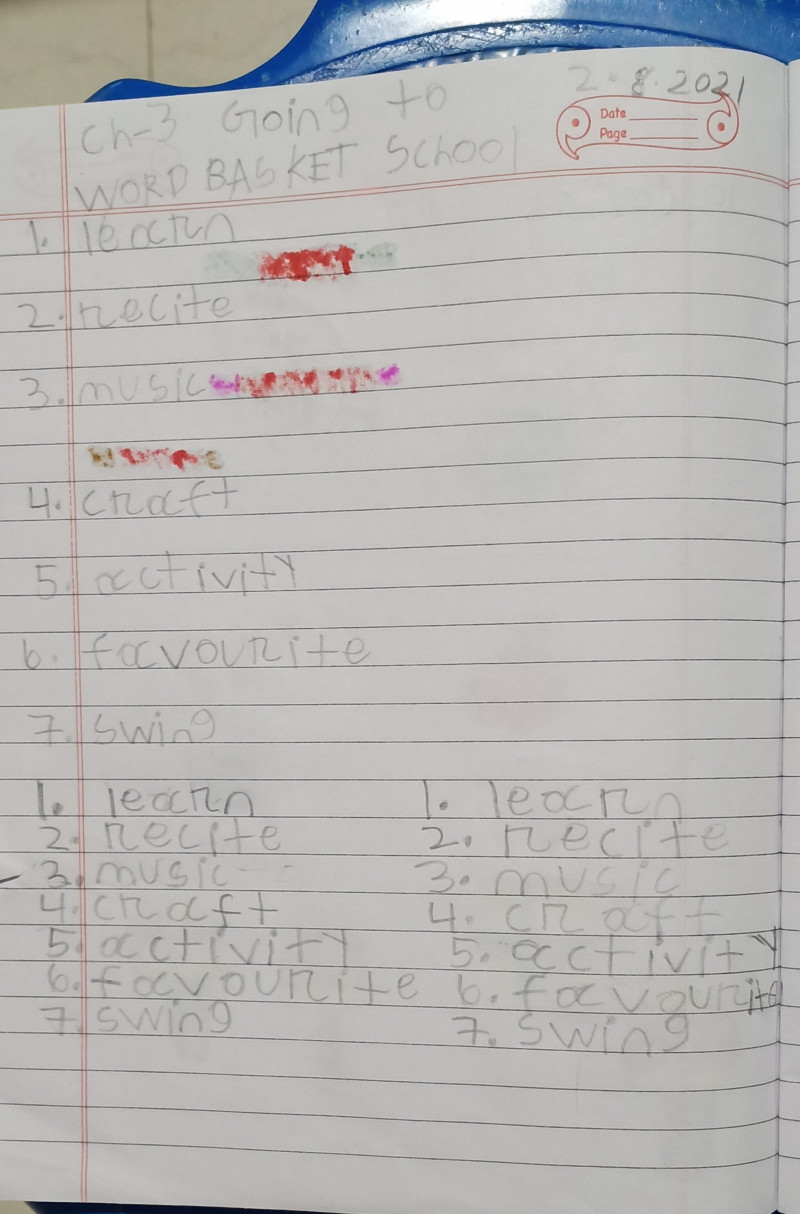 2.8.2021
Ch-3 Going to
Date
Page
WORD BASKET School
1. learn
2. recite
3. music
4. craft
5. activity
6. favourite
7. swing
1. learn 1. learn
2. recite 2. recite
3. music 3. music
4. craft 4. craft
5. activity 5. activity
6. favourite 6. favourite
7. swing 7. swing